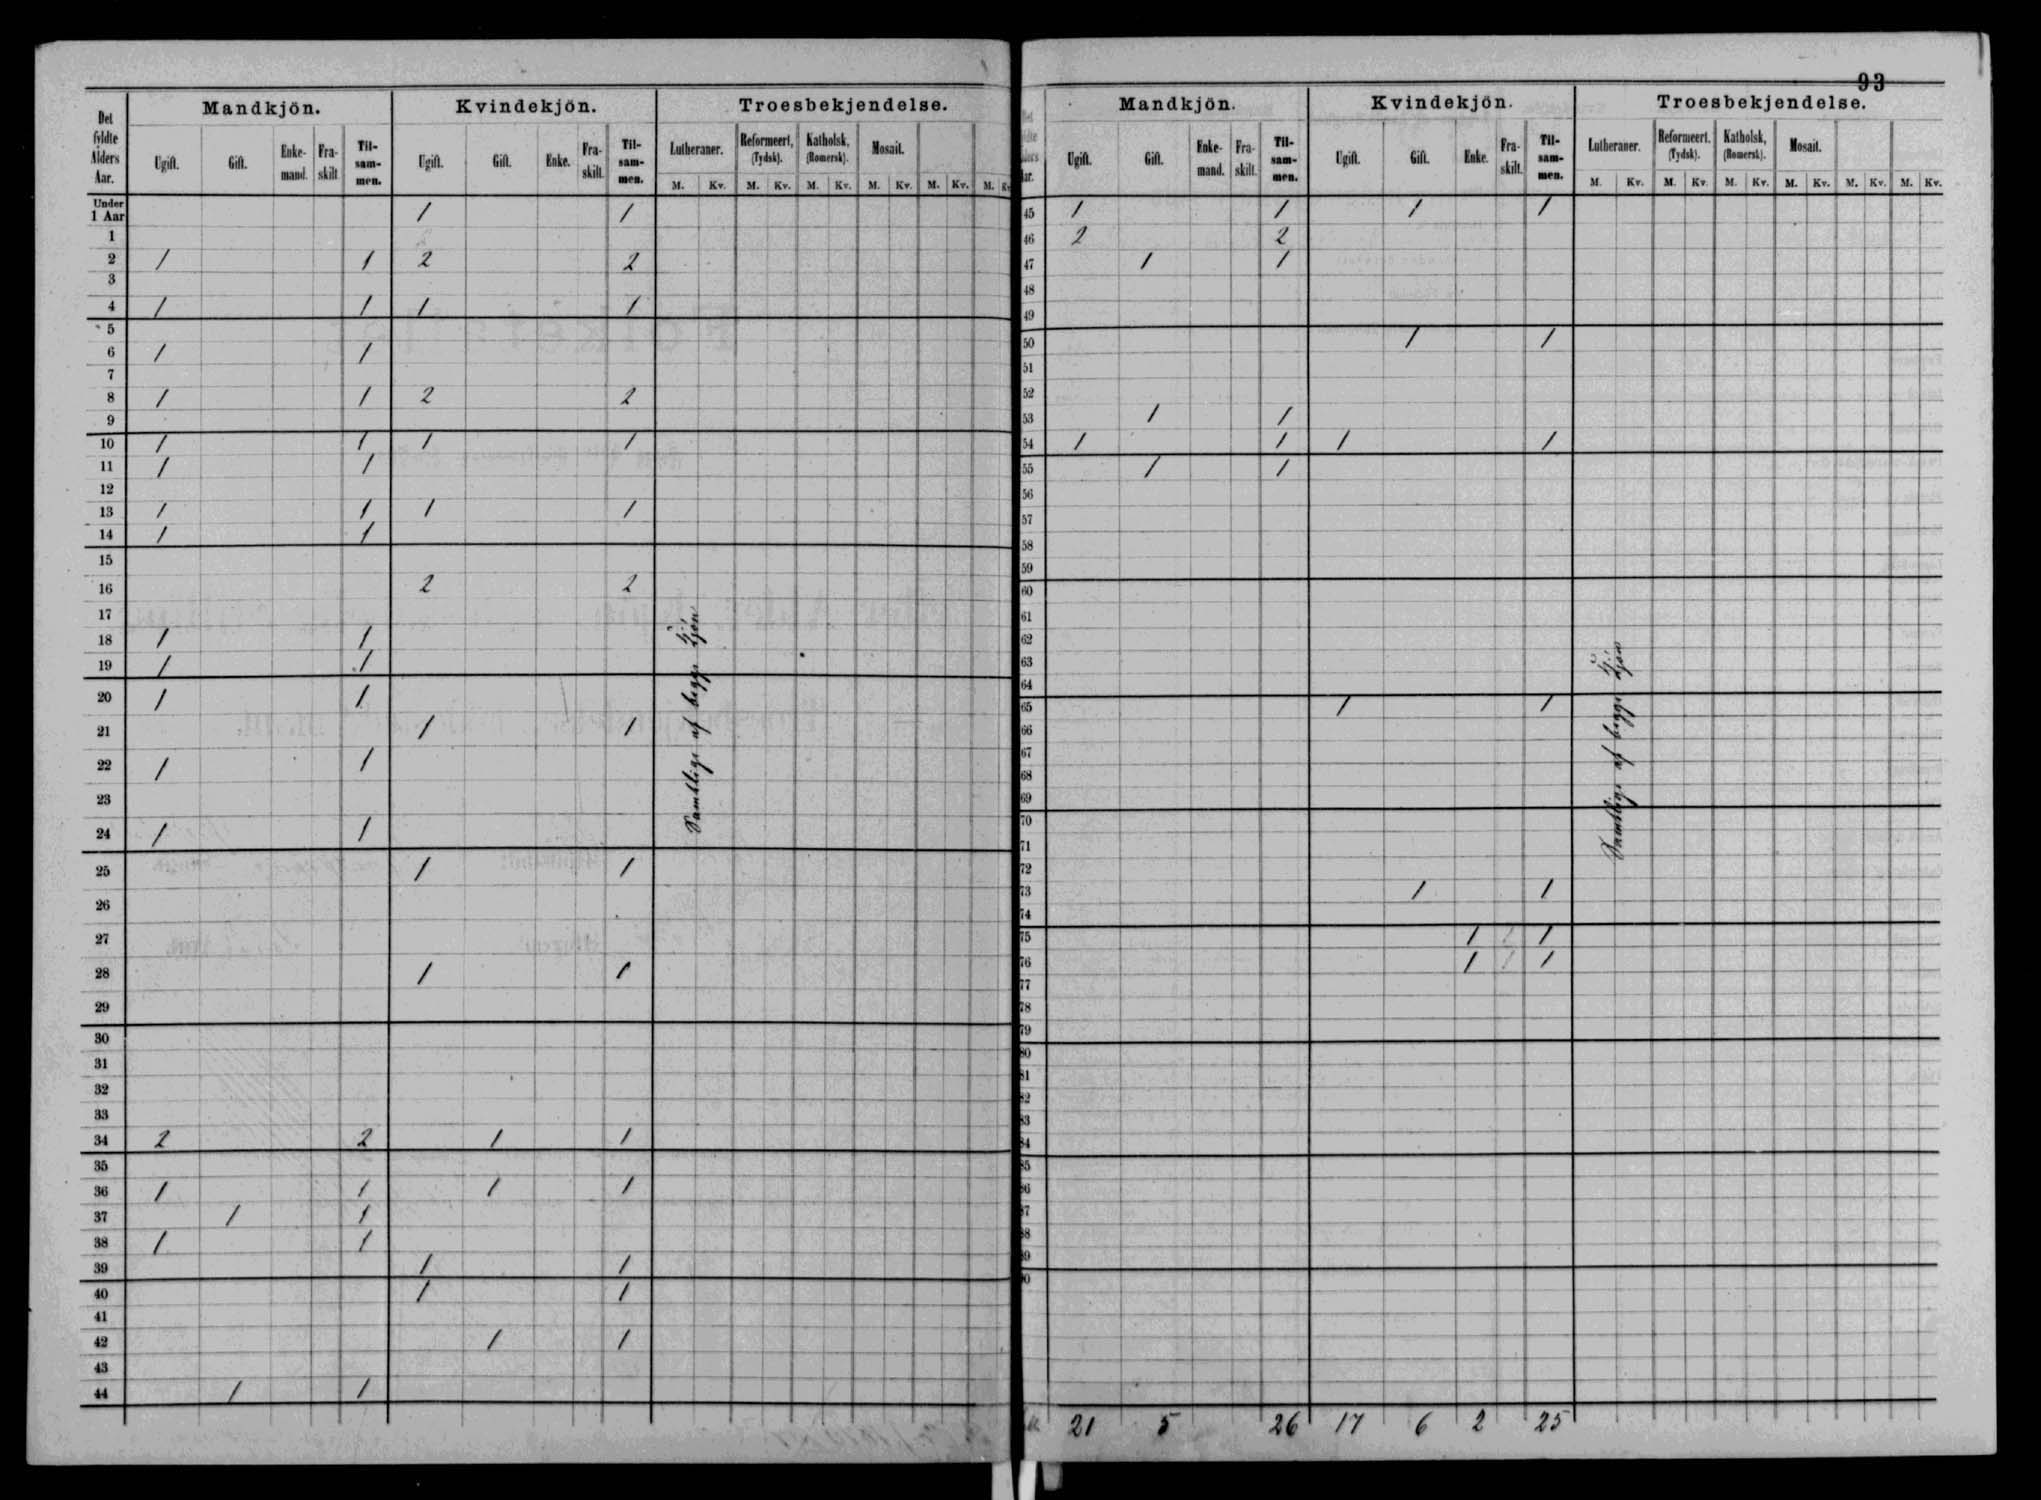 93
Mandkjön. Kvindekjön. Troesbekjendelse.
Det fyldte Alders Aar. Ugift. Gift. Enke-mand. Fra-skilt. Til-sam-men. Ugift. Gift. Enke. Fra-skilt. Til-sam-men. Lutheraner. Reformeert, (Tydsk). Katholsk, (Romersk). Mosait.
M. Kv. M. Kv. M. Kv. M. Kv. M. Kv. M. Kv
Under 1 Aar 1 1
1
2 1 1 2 2
3
4 1 1 1 1
5
6 1 1
7
8 1 1 2 2
9
10 1 1 1 1
11 1 1
12
13 1 1 1 1
14 1 1
15
16 2 2
17
18 1 1
19 1 1
20 1 1
21 1 1
22 1 1
23
24 1 1
25 1 1
26
27
28 1 1
29
30
31
32
33
34 2 2 1 1
35
36 1 1 1 1
37 1 1
38 1 1
39 1 1
40 1 1
41
42 1 1
43
44 1 1
Samtlige af begge Kjön
Mandkjön. Kvindekjön. Troesbekjendelse.
Ugift. Gift. Enke-mand. Fra-skilt. Til-sam-men. Ugift. Gift. Enke. Fra-skilt. Til-sam-men. Lutheraner. Reformeert. (Tydsk). Katholsk, (Romersk). Mosait.
M. Kv. M. Kv. M. Kv. M. Kv. M. Kv. M. Kv.
45 1 1 1 1
46 2 2
47 1 1
48
49
50 1 1
51
52
53 1 1
54 1 1 1 1
55 1 1
56
57
58
59
60
61
62
63
64
65 1 1
66
67
68
69
70
71
72
73 1 1
74
75 1 1
76 1 1
77
78
79
80
81
82
83
84
85
86
87
88
89
90
Samtlige af begge Kjön
21 5 26 17 6 2 25